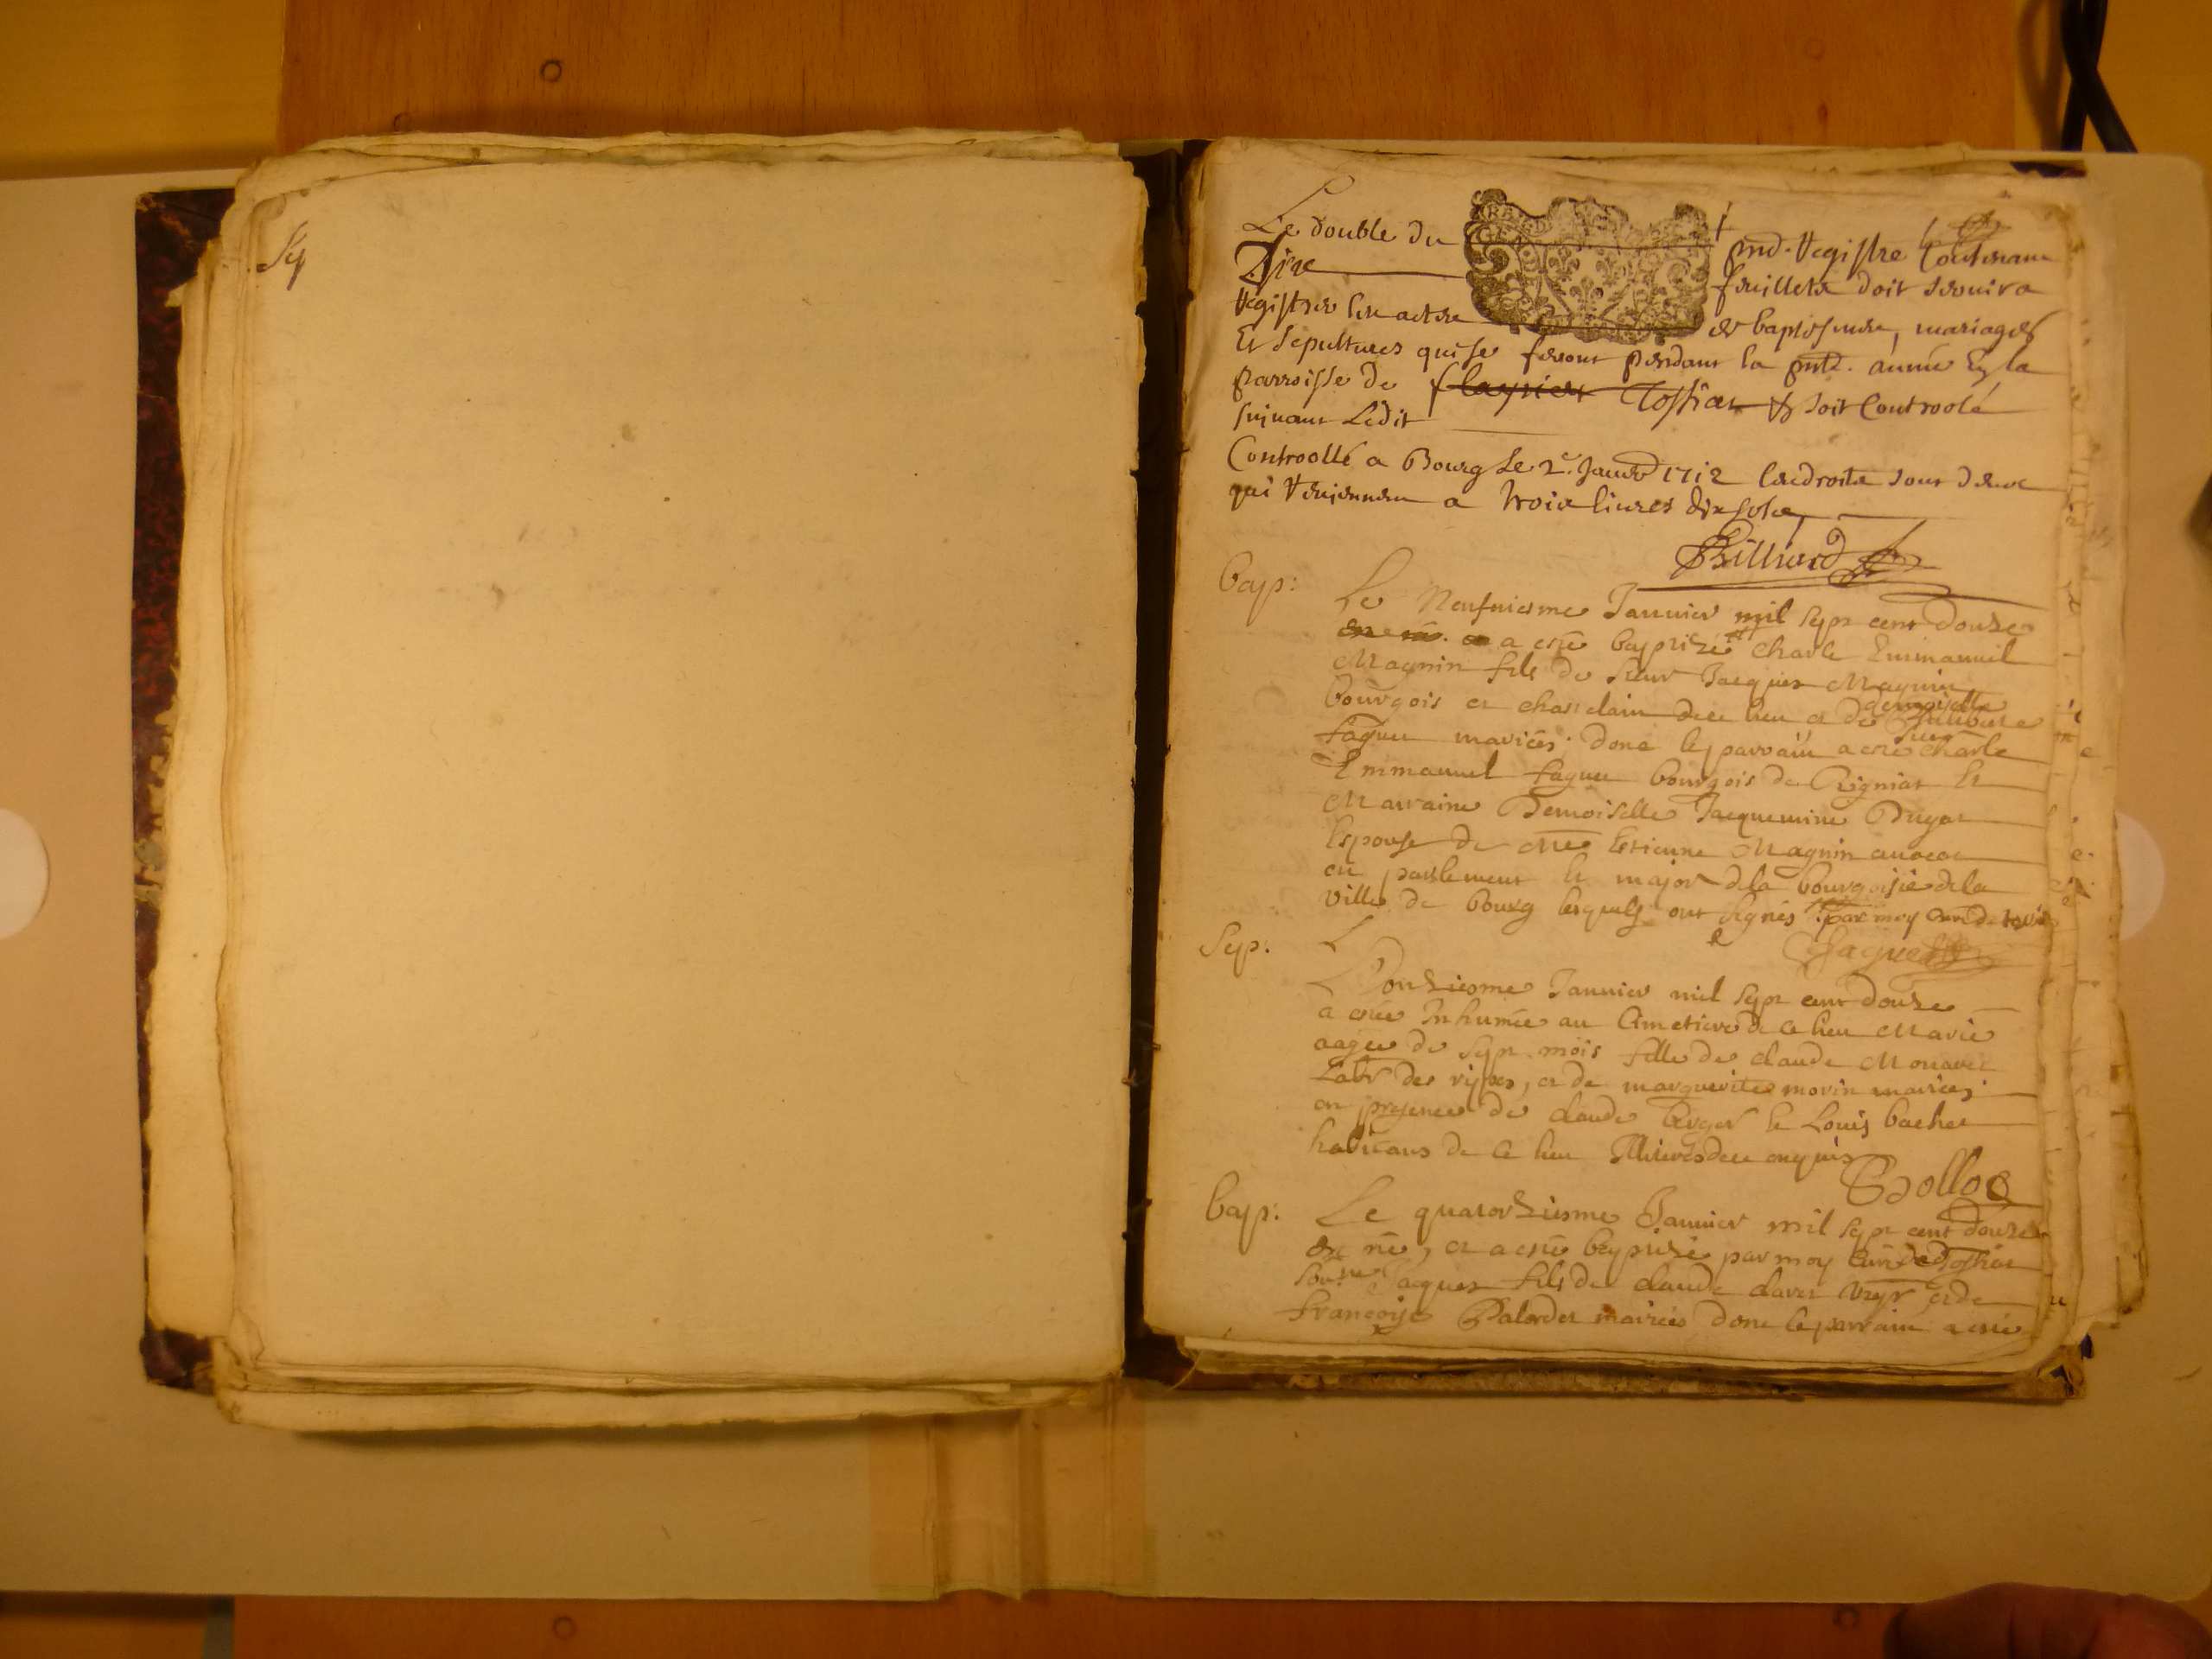 Sep
Le double du pnt. Registre Contenant
Dixe feuillets doit servir a
Registrer les actes de baptesmes, mariages
Et Sepultures qui se feront pendant la pnte. année En la
parroisse de Tossiat & soit Controolé
suivant L'edit
Controollé a Bourg le 2e. Janvr 1712 les droits sont de
qui reviennent a trois livres dix sols
Billiard
Bap:
Le Neufuiesme Januier mil sept cent douze
a esté baptizé Charle Emmanuel
Magnin fils de sieur Jacques Magnin
bourgois et chastelain de ce lieu et de demoiselle
faguet mariés; dont le parrain a esté sieur Charle
Emmanuel faguet bourgois de Rigniat et
Marraine Demoiselle Jacquemine Dugat
Espouse de Mre Estienne Magnin auocat
en parlement et major de la bourgoisie de la
ville de bourg lesquels ont signés par moy curé de
Faguet
Sep.
L
Le Douziesme Januier mil sept cent douze
a estée Inhumée au Cimetiere de ce lieu Marie
aagée de sept mois fille de claude Monavet
Labr des rippes, et de marguerite morin mariés;
en presence de claude Berger et Louis bachet
habitans de ce lieu Illiterés de ce enquis
Bollo
Bap:
Le quatorziesme Januier mil sept cent douze
est né, et a esté baptizé par moy Curé de Tossiat
sousne Jaques fils de claude clavet vigr et de
francoise Palordet mairiés dont le parrain a esté